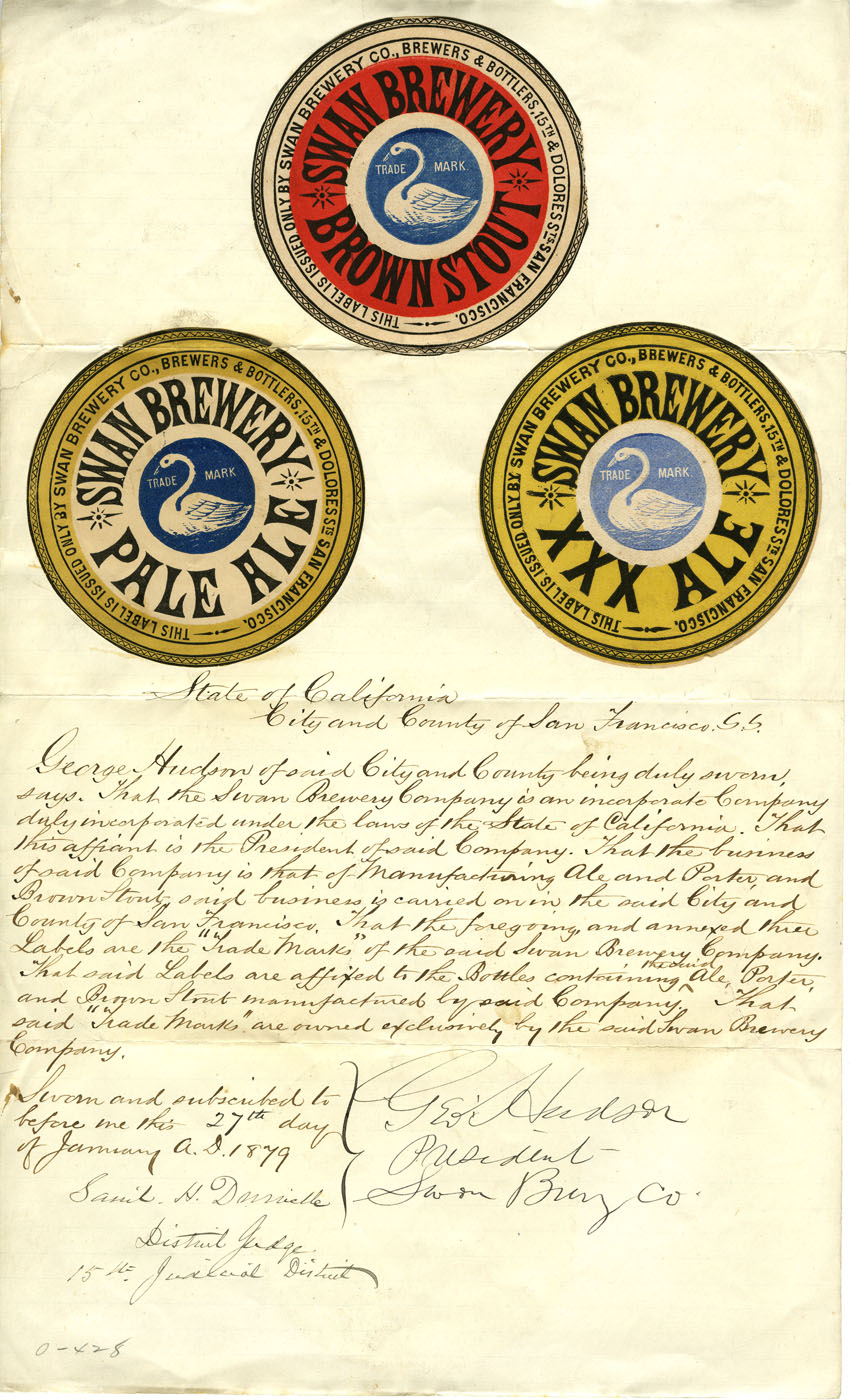 THIS LABEL IS ISSUED ONLY BY SWAN BREWERY CO., BREWERS & BOTTLERS, 15TH & DOLORES STS. SAN FRANCISCO.
SWAN BREWERY
TRADE MARK.
BROWN STOUT
THIS LABEL IS ISSUED ONLY BY SWAN BREWERY CO., BREWERS & BOTTLERS, 15TH & DOLORES STS. SAN FRANCISCO.
SWAN BREWERY
TRADE MARK
PALE ALE
THIS LABEL IS ISSUED ONLY BY SWAN BREWERY CO., BREWERS & BOTTLERS, 15TH & DOLORES STS. SAN FRANCISCO.
SWAN BREWERY
TRADE MARK
XXX ALE
State of California
City and County of San Francisco. S.S.
George Hudson of said City and County being duly sworn,
says. That the Swan Brewery Company is an incorporate Company
duly incorporated under the laws of the State of California. That
this affiant is the President of said Company. That the business
of said Company is that of Manufacturing Ale and Porter, and
Brown Stout, said business is carried on in the said City and
County of San Francisco. That the foregoing, and annexed three
Labels are the "Trade Marks" of the said Swan Brewery Company.
That said Labels are affixed to the Bottles containing the said Ale, Porter,
and Brown Stout manufactured by said Company. That
said "Trade Marks" are owned exclusively by the said Swan Brewery
Company.
Sworn and subscribed to
before me this 27th day
of January A.D. 1879
Geo. Hudson
President
Swan Brewy Co.
Saml. H. Dwinelle
District Judge
15th Judicial District
0-428